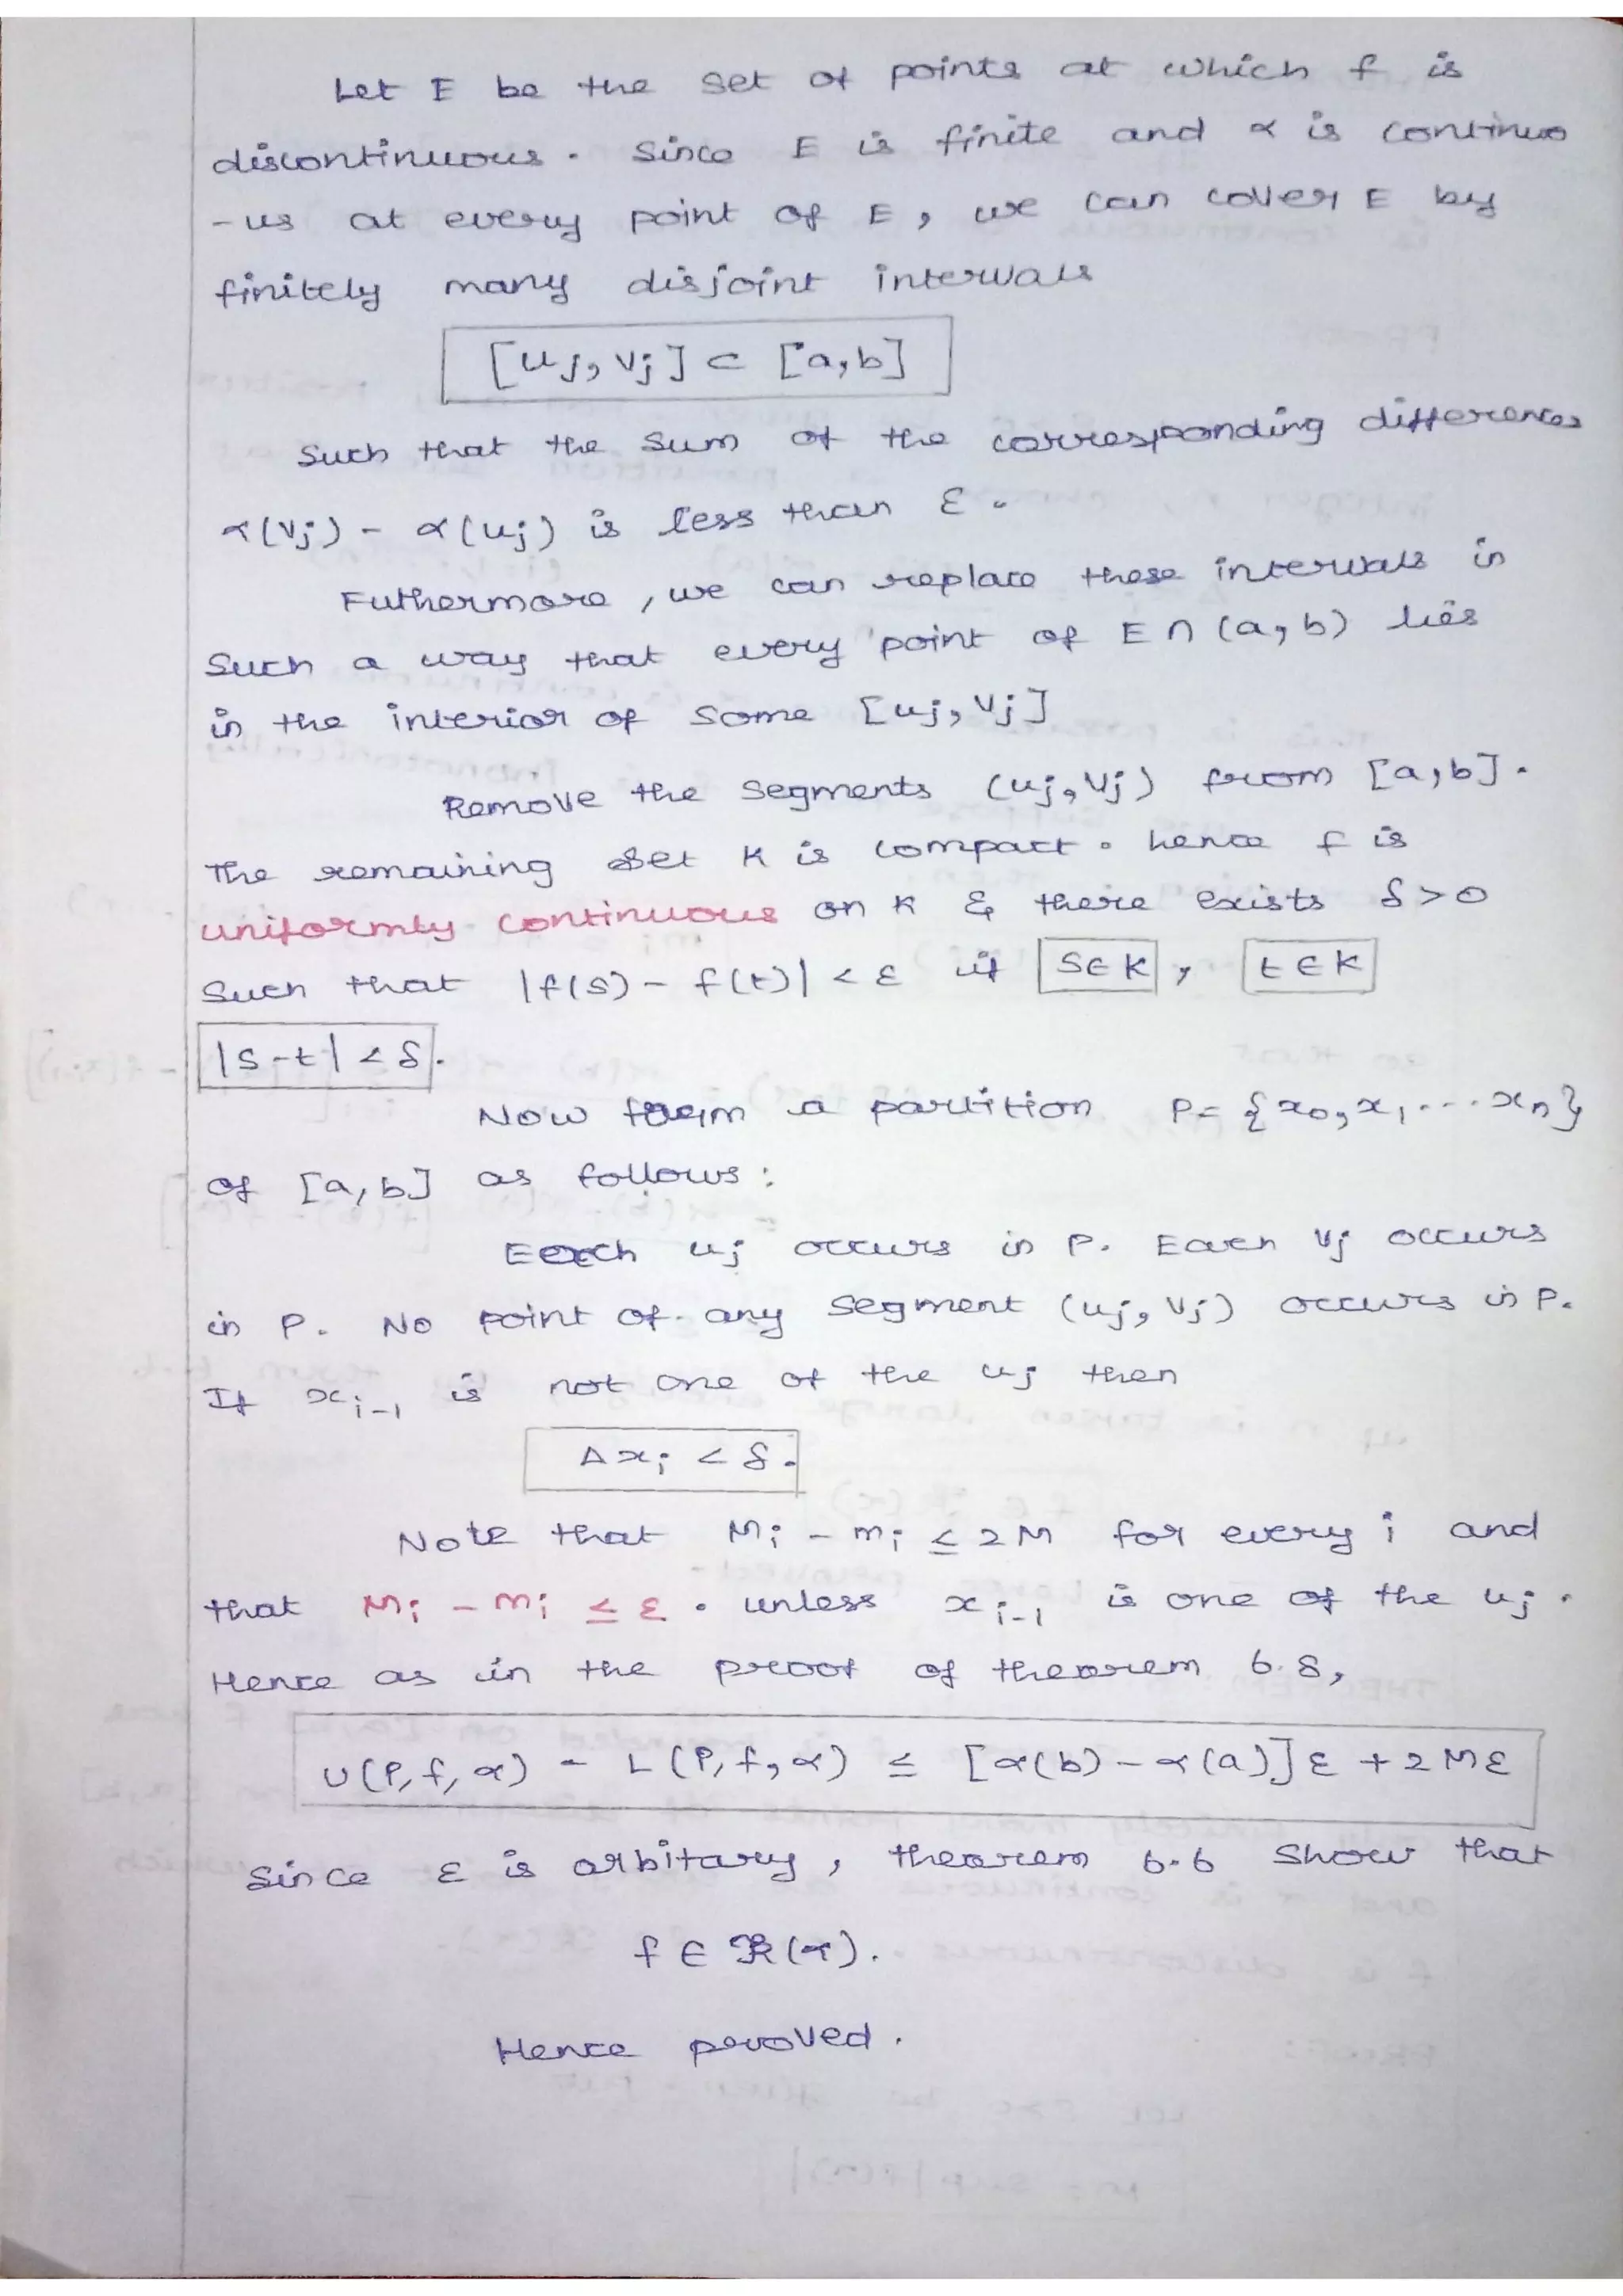 Let E be the set of points at which f is
discontinuous. Since E is finite and α is continuo
-us at every point of E, we can cover E by
finitely many disjoint intervals
[uj, vj] ⊂ [a,b]
Such that the sum of the corresponding differences
α(vj) - α(uj) is less than ε.
Futhermore, we can replace these intervals in
Such a way that every point of E ∩ (a,b) lies
in the interior of some [uj, vj]
Remove the segments (uj, vj) from [a,b].
The remaining set K is compact. hence f is
uniformly continuous on K & there exists δ>0
Such that |f(s) - f(t)| < ε if s∈K, t∈K
|s-t| < δ.
Now form a partition P= {x₀, x₁ ... xₙ}
of [a,b] as follows:
Each uj occurs in P. Each vj occurs
in P. No point of any segment (uj, vj) occurs in P.
If xᵢ₋₁ is not one of the uj then
Δxᵢ < δ.
Note that Mᵢ - mᵢ ≤ 2M for every i and
that Mᵢ - mᵢ ≤ ε. unless xᵢ₋₁ is one of the uj.
Hence as in the proof of theorem 6.8,
U(P,f,α) - L(P,f,α) ≤ [α(b)-α(a)]ε + 2Mε
Since ε is arbitary, theorem 6.6 Show that
f ∈ ℛ(α).
Hence proved.